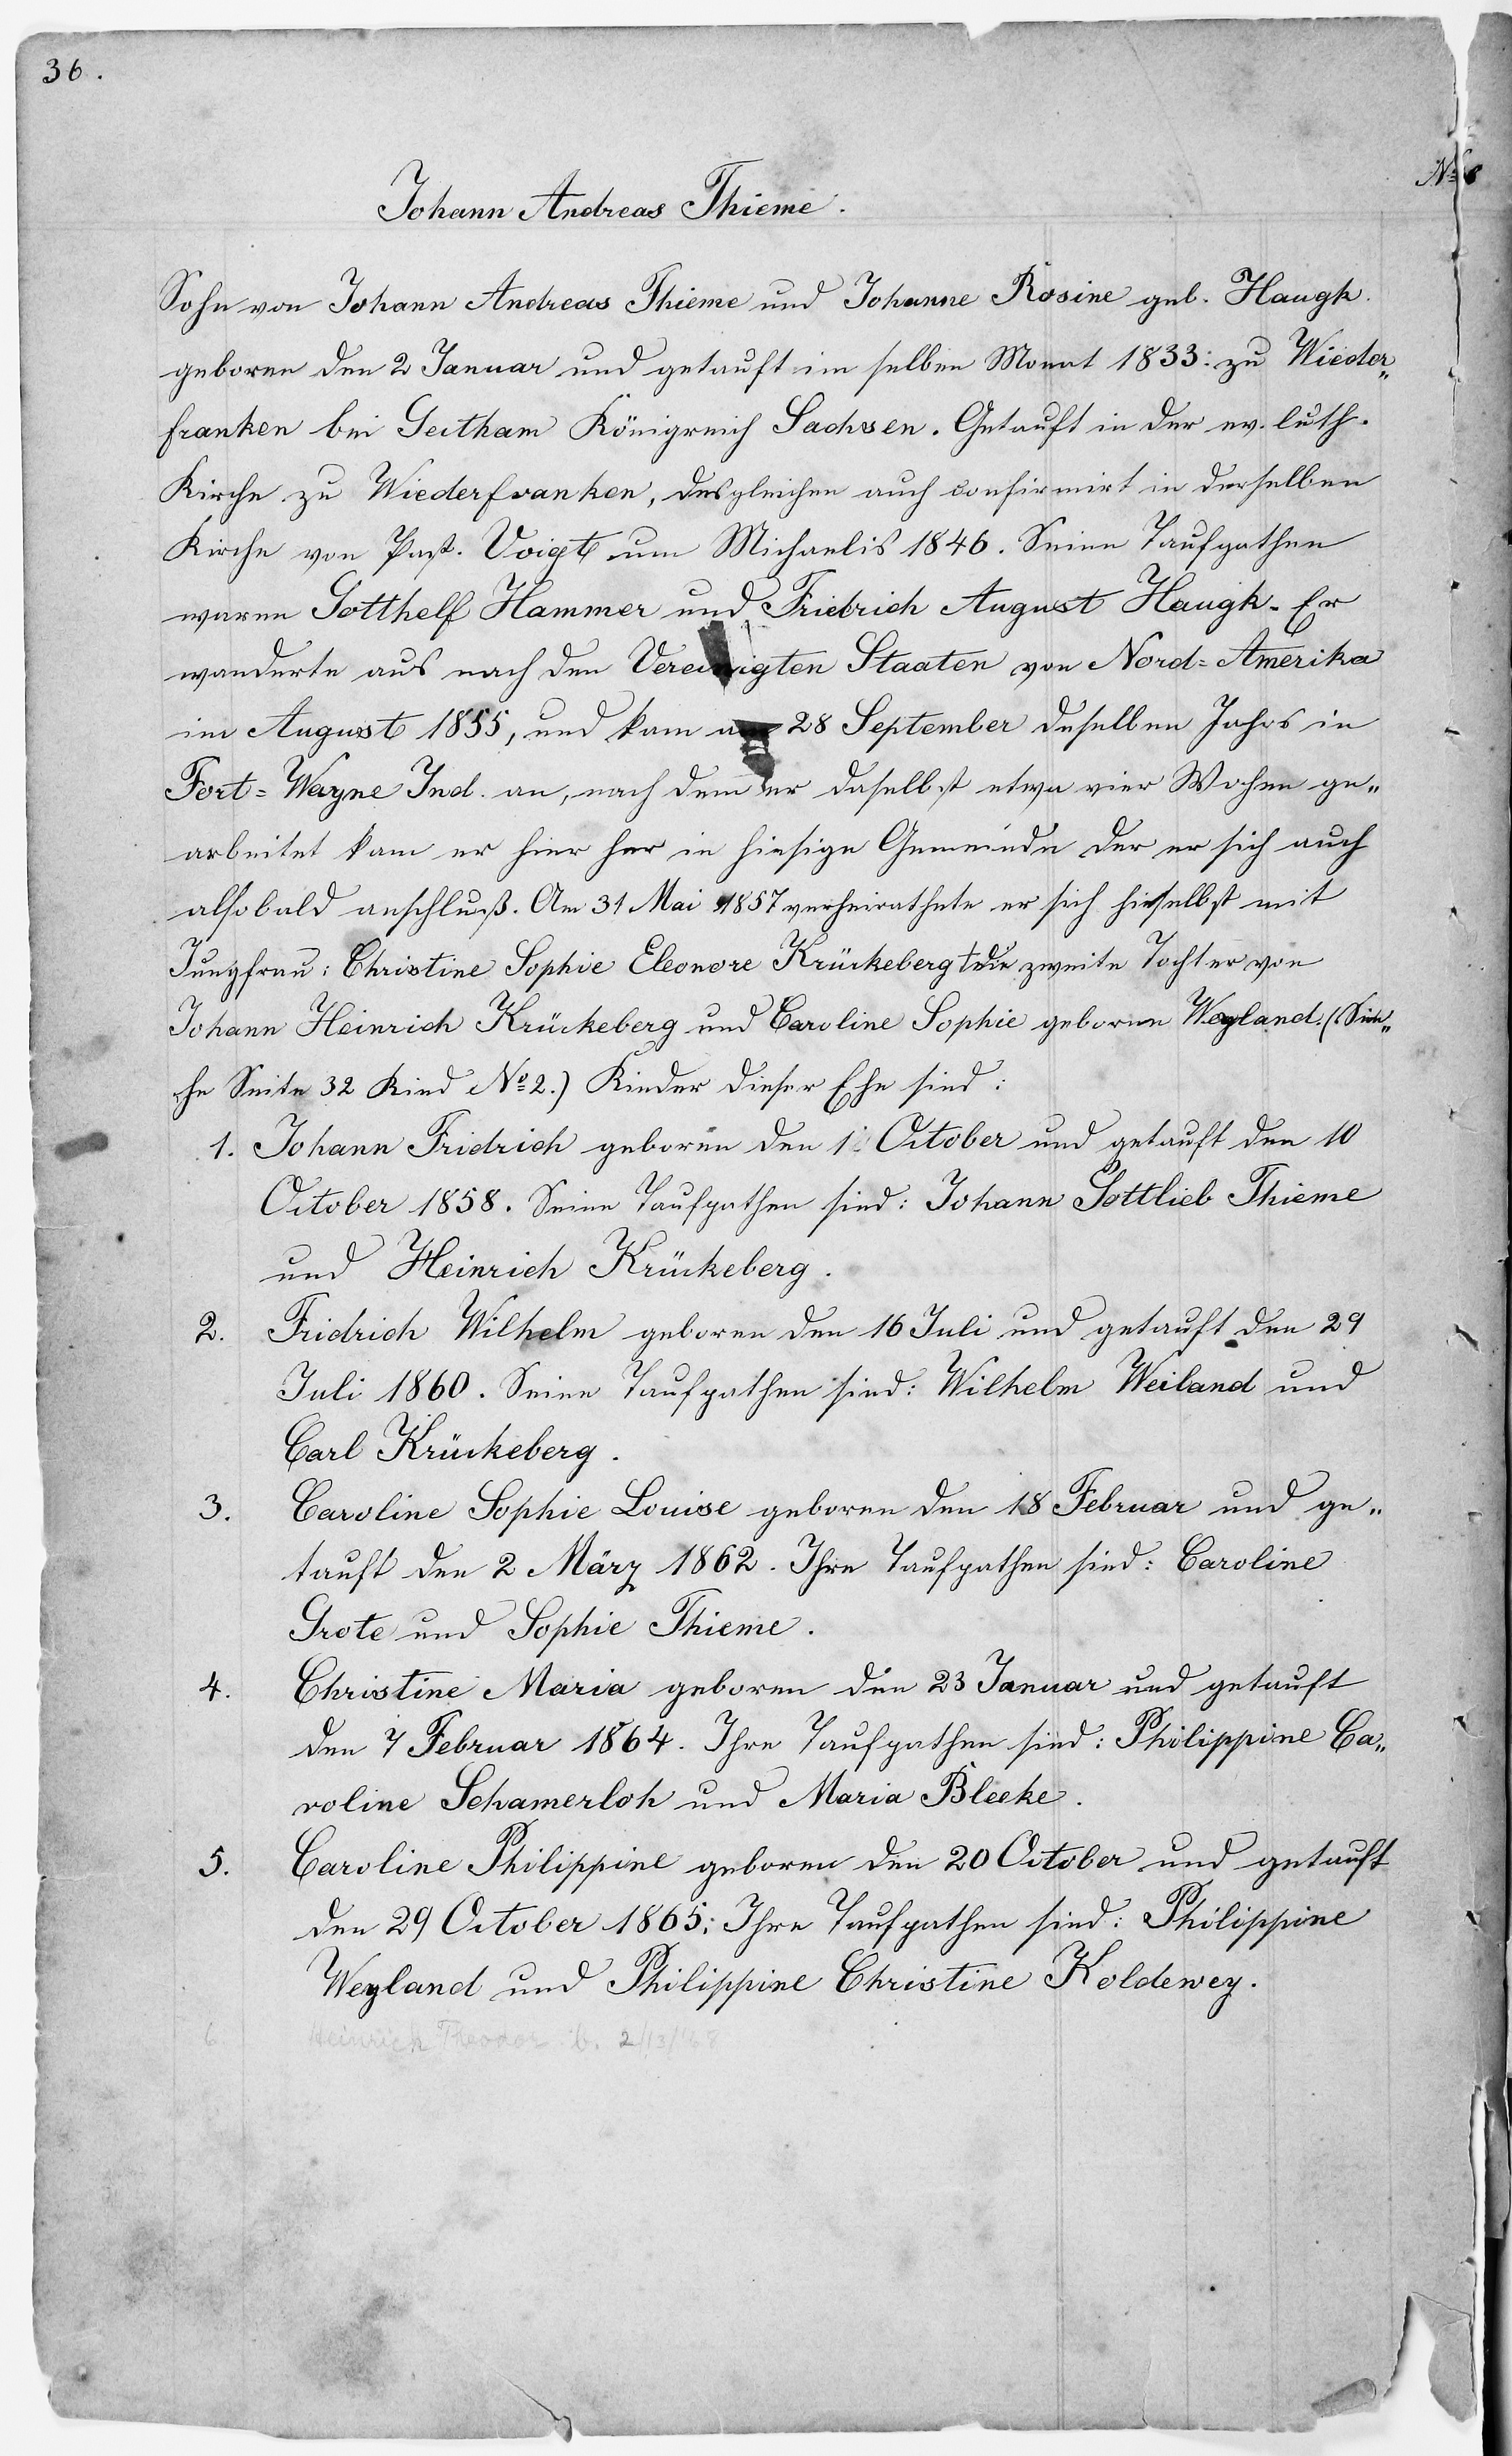 36.
No 6
Johann Andreas Thieme.
Sohn von Johann Andreas Thieme und Johanne Rosine geb. Haugk.
geboren den 2 Januar und getauft im selben Monat 1833: zu Wieder„
franken bei Geitham Königreich Sachsen. Getauft in der ev. luth.
Kirche zu Wiederfranken, desgleichen auch confirmirt in derselben
Kirche von Past. Voigt um Michaelis 1846. Seine Taufpathen
waren Gotthelf Hammer und Friedrich August Haugk. Er
wanderte aus nach den Vereinigten Staaten von Nord=Amerika
im August 1855, und kam am 28 September deselben Jahrs in
Fort=Wayne Ind. an, nach dem er daselbst etwa vier Wochen ge„
arbeitet kam er hier her in hiesige Gemeinde der er sich auch
alsobald anschluß. Am 31 Mai 1857 verheirathete er sich hieselbst mit
Jungfrau: Christine Sophie Eleonore Krückeberg die zweite Tochter von
Johann Heinrich Krückeberg und Caroline Sophie geborne Weyland. (Sie„
he Seite 32 Kind No 2.) Kinder dieser Ehe sind:
1. Johann Fridrich geboren den 1 October und getauft den 10
October 1858. Seine Taufpathen sind: Johann Gottlieb Thieme
und Heinrich Krückeberg.
2. Fridrich Wilhelm geboren den 16 Juli und getauft den 29
Juli 1860. Seine Taufpathen sind: Wilhelm Weiland und
Carl Krückeberg.
3. Caroline Sophie Louise geboren den 18 Februar und ge„
tauft den 2 März 1862. Ihre Taufpathen sind: Caroline
Grote und Sophie Thieme.
4. Christine Maria geboren den 23 Januar und getauft
den 7 Februar 1864. Ihre Taufpathen sind: Philippine Ca„
roline Schamerloh und Maria Bleeke.
5. Caroline Philippine geboren den 20 October und getauft
den 29 October 1865: Ihre Taufpathen sind: Philippine
Weyland und Philippine Christine Koldewey.
6. Heinrich Theodor b. 2/13/68